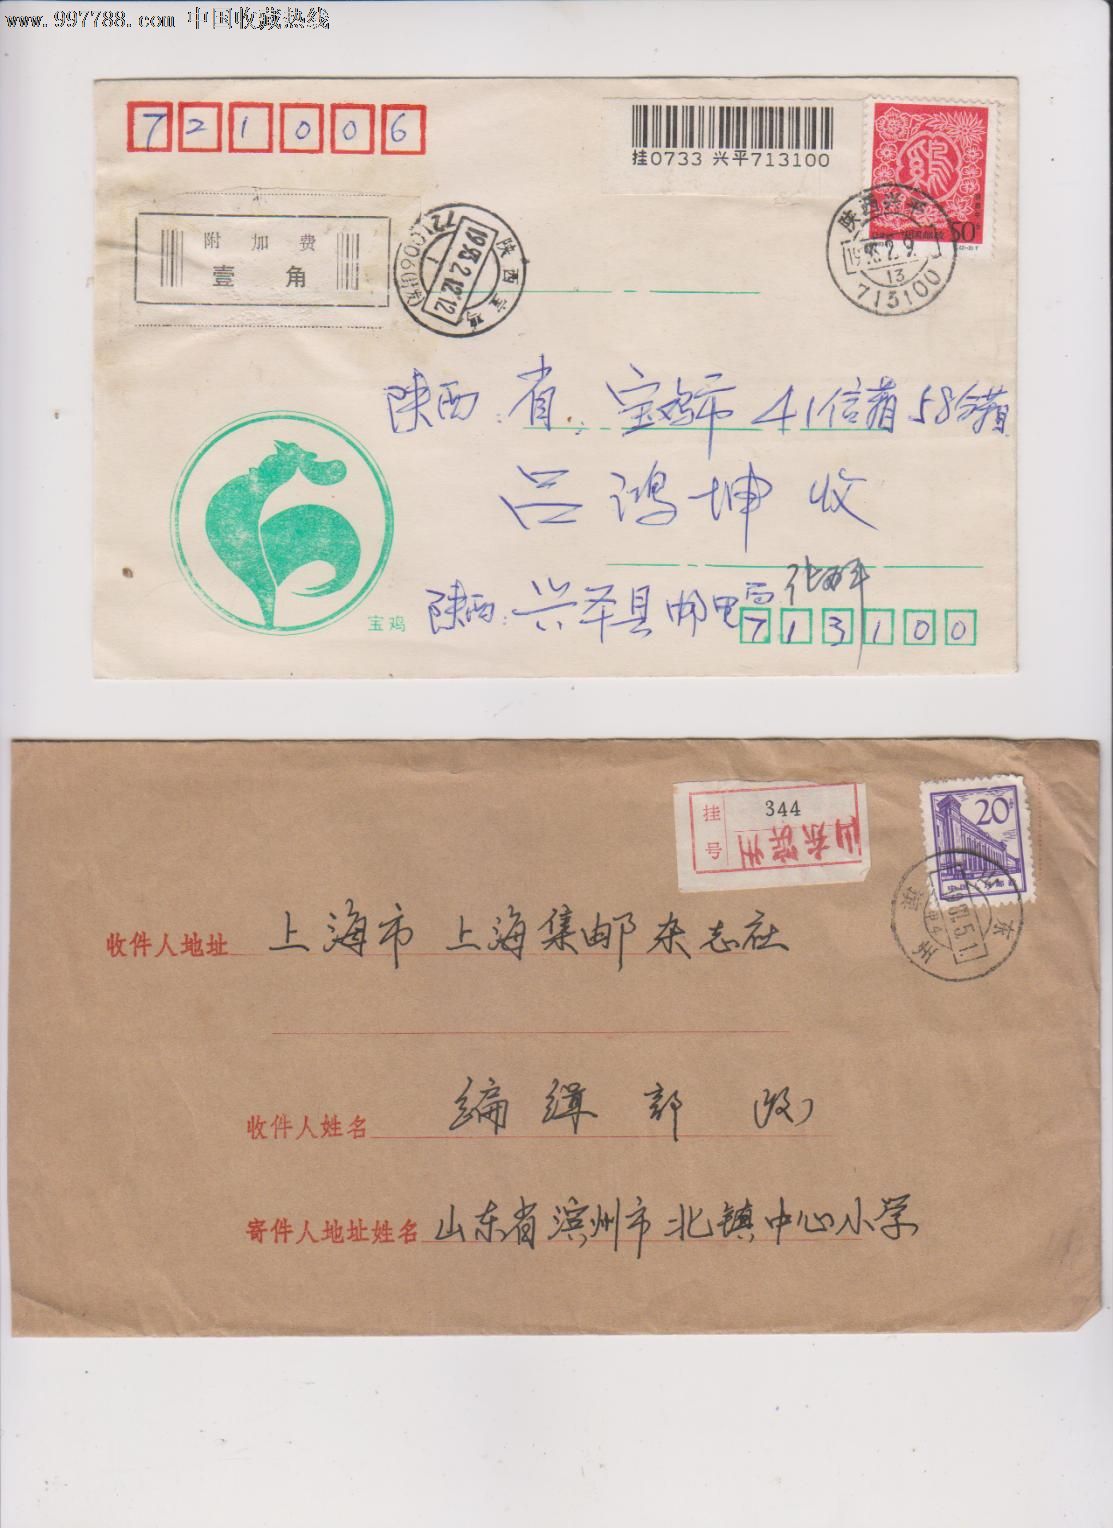 www.997788.com 中国收藏热线
721006
挂0733 兴平713100
附加费
壹角
陕西宝鸡
1993.2.12.12
721006
陕西兴平
1993.2.9.
13
713100
50分
陕西省宝鸡市41信箱58分箱
吕鸿坤收
宝鸡
陕西兴平县邮电局
713100
挂号
344
山东滨州
20分
收件人地址 上海市 上海集邮杂志社
收件人姓名 编缉部 (收)
寄件人地址姓名 山东省滨州市北镇中心小学